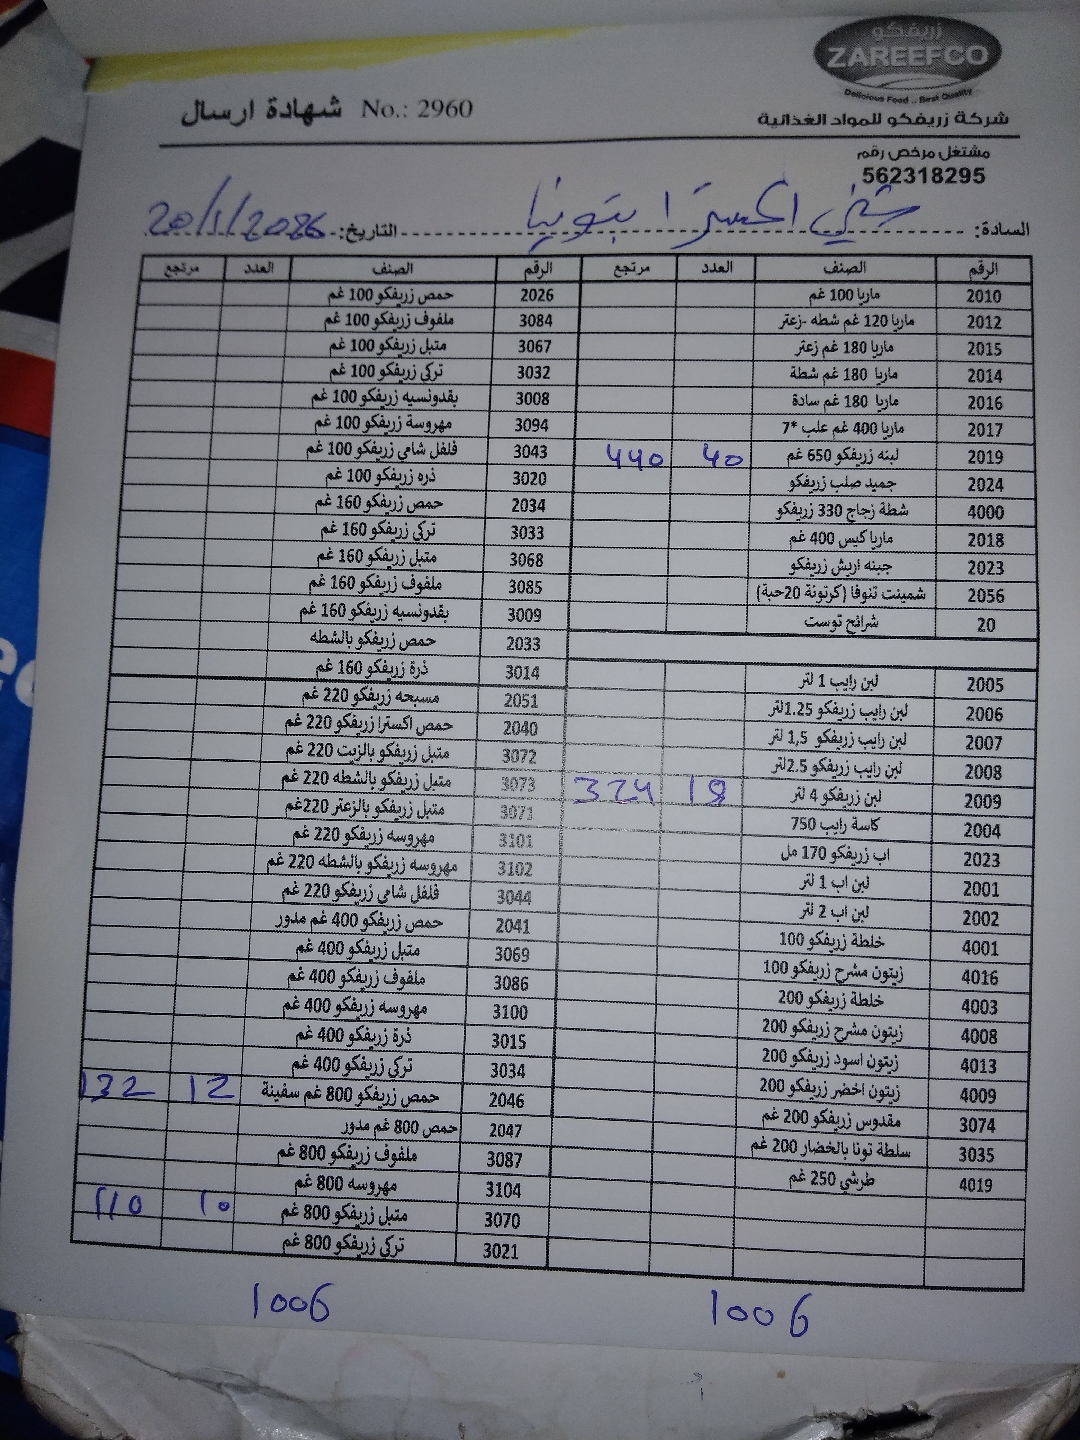 زريفكو
ZAREEFCO
Delicious Food .. Best Quality
شركة زريفكو للمواد الغذائية
شهادة ارسال No.: 2960
مشتغل مرخص رقم
562318295
السادة: التاريخ: 20/1/2026
الرقم الصنف العدد مرتجع الرقم الصنف العدد مرتجع
2010 ماريا 100 غم 2026 حمص زريفكو 100 غم
2012 ماريا 120 غم شطه -زعتر 3084 ملفوف زريفكو 100 غم
2015 ماريا 180 غم زعتر 3067 متبل زريفكو 100 غم
2014 ماريا 180 غم شطة 3032 تركي زريفكو 100 غم
2016 ماريا 180 غم سادة 3008 بقدونسيه زريفكو 100 غم
2017 ماريا 400 غم علب *7 3094 مهروسة زريفكو 100 غم
2019 لبنه زريفكو 650 غم 40 440 3043 فلفل شامي زريفكو 100 غم
2024 جميد صلب زريفكو 3020 ذره زريفكو 100 غم
4000 شطة زجاج 330 زريفكو 2034 حمص زريفكو 160 غم
2018 ماريا كيس 400 غم 3033 تركي زريفكو 160 غم
2023 جبنه اريش زريفكو 3068 متبل زريفكو 160 غم
2056 شمينت تنوفا (كرتونة 20حبة) 3085 ملفوف زريفكو 160 غم
20 شرائح توست 3009 بقدونسيه زريفكو 160 غم
2033 حمص زريفكو بالشطه
2005 لبن رايب 1 لتر 3014 ذرة زريفكو 160 غم
2006 لبن رايب زريفكو 1.25لتر 2051 مسبحه زريفكو 220 غم
2007 لبن رايب زريفكو 1,5 لتر 2040 حمص اكسترا زريفكو 220 غم
2008 لبن رايب زريفكو 2.5لتر 3072 متبل زريفكو بالزيت 220 غم
2009 لبن زريفكو 4 لتر 18 324 3073 متبل زريفكو بالشطه 220 غم
2004 كاسة رايب 750 3071 متبل زريفكو بالزعتر 220غم
2023 اب زريفكو 170 مل 3101 مهروسه زريفكو 220 غم
2001 لبن اب 1 لتر 3102 مهروسه زريفكو بالشطه 220 غم
2002 لبن اب 2 لتر 3044 فلفل شامي زريفكو 220 غم
4001 خلطة زريفكو 100 2041 حمص زريفكو 400 غم مدور
4016 زيتون مشرح زريفكو 100 3069 متبل زريفكو 400 غم
4003 خلطة زريفكو 200 3086 ملفوف زريفكو 400 غم
4008 زيتون مشرح زريفكو 200 3100 مهروسه زريفكو 400 غم
4013 زيتون اسود زريفكو 200 3015 ذرة زريفكو 400 غم
4009 زيتون اخضر زريفكو 200 3034 تركي زريفكو 400 غم
3074 مقدوس زريفكو 200 غم 2046 حمص زريفكو 800 غم سفينة 12 132
3035 سلطة تونا بالخضار 200 غم 2047 حمص 800 غم مدور
4019 طرشي 250 غم 3087 ملفوف زريفكو 800 غم
3104 مهروسه 800 غم
3070 متبل زريفكو 800 غم 10 110
3021 تركي زريفكو 800 غم
1006 1006